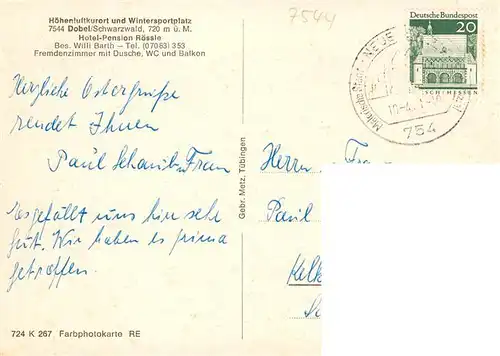 Höhenluftkurort und Wintersportplatz
7544 Dobel/Schwarzwald, 720 m ü. M.
Hotel-Pension Rössle
Bes. Willi Barth – Tel. (07083) 353
Fremdenzimmer mit Dusche, WC und Balkon
7544
Deutsche Bundespost
20
754
Herzliche Ostergrüße
sendet Ihnen
Paul Schaub u. Frau
Es gefällt uns hier sehr
gut. Wir haben es prima
getroffen.
Gebr. Metz, Tübingen
Herrn
Paul
724 K 267 Farbphotokarte RE